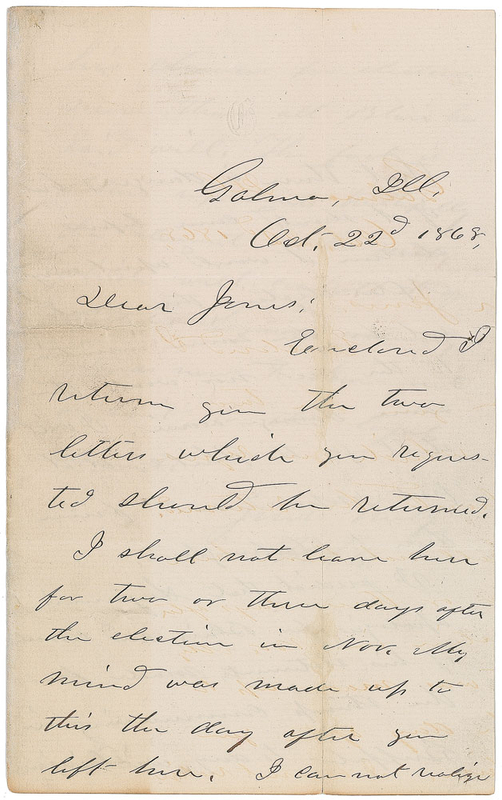 Galena, Ill.
Oct. 22d 1868,
Dear Jones;
Enclosed I
return you the two
letters which you reques-
ted should be returned.
I shall not leave here
for two or three days after
the election in Nov. My
mind was made up to
this the day after you
left here. I can not realize